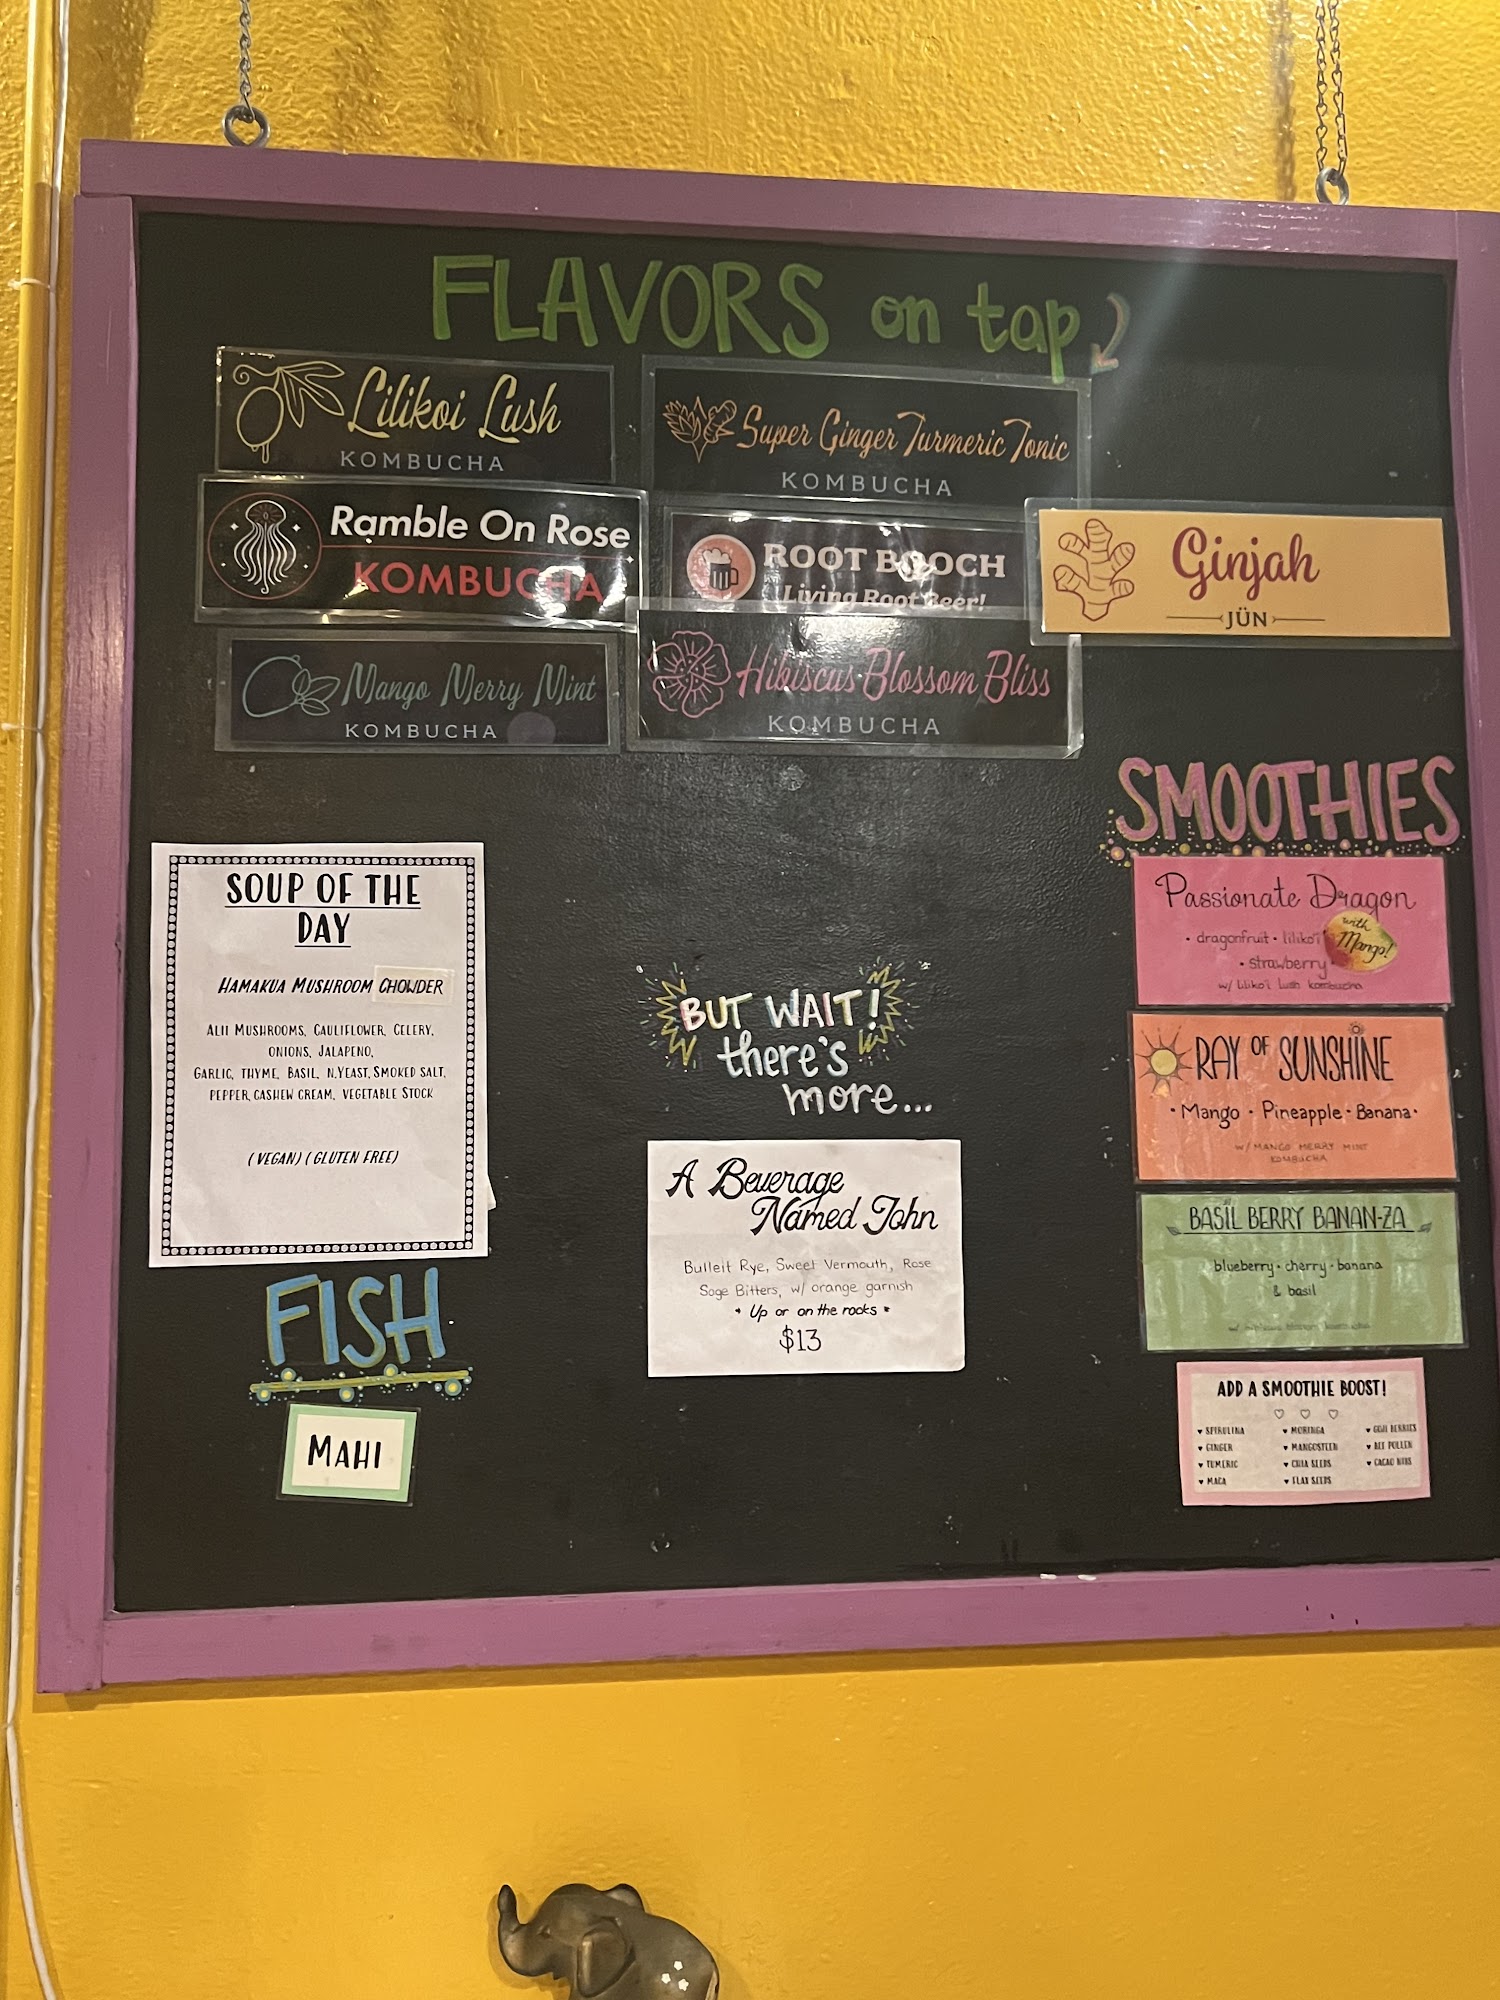 FLAVORS on tap
Lilikoi Lush
KOMBUCHA
Super Ginger Turmeric Tonic
KOMBUCHA
Ramble On Rose
KOMBUCHA
ROOT BOOCH
Living Root Beer!
Ginjah
JÜN
Mango Merry Mint
KOMBUCHA
Hibiscus Blossom Bliss
KOMBUCHA
SOUP OF THE
DAY
HAMAKUA MUSHROOM CHOWDER
ALII MUSHROOMS, CAULIFLOWER, CELERY,
ONIONS, JALAPENO,
GARLIC, THYME, BASIL, N.YEAST, SMOKED SALT,
PEPPER, CASHEW CREAM, VEGETABLE STOCK
(VEGAN) (GLUTEN FREE)
FISH
MAHI
BUT WAIT!
there's
more...
A Beverage
Named John
Bulleit Rye, Sweet Vermouth, Rose
Sage Bitters, w/ orange garnish
* Up or on the rocks *
$13
SMOOTHIES
Passionate Dragon
• dragonfruit • liliko'i
• strawberry •
with
Mango!
w/ liliko'i lush kombucha
RAY OF SUNSHINE
• Mango • Pineapple • Banana •
w/ MANGO MERRY MINT
KOMBUCHA
BASIL BERRY BANAN-ZA
blueberry • cherry • banana
& basil
ADD A SMOOTHIE BOOST!
♥ SPIRULINA ♥ MORINGA ♥ GOJI BERRIES
♥ GINGER ♥ MANGOSTEEN ♥ BEE POLLEN
♥ TUMERIC ♥ CHIA SEEDS ♥ CACAO NIBS
♥ MACA ♥ FLAX SEEDS